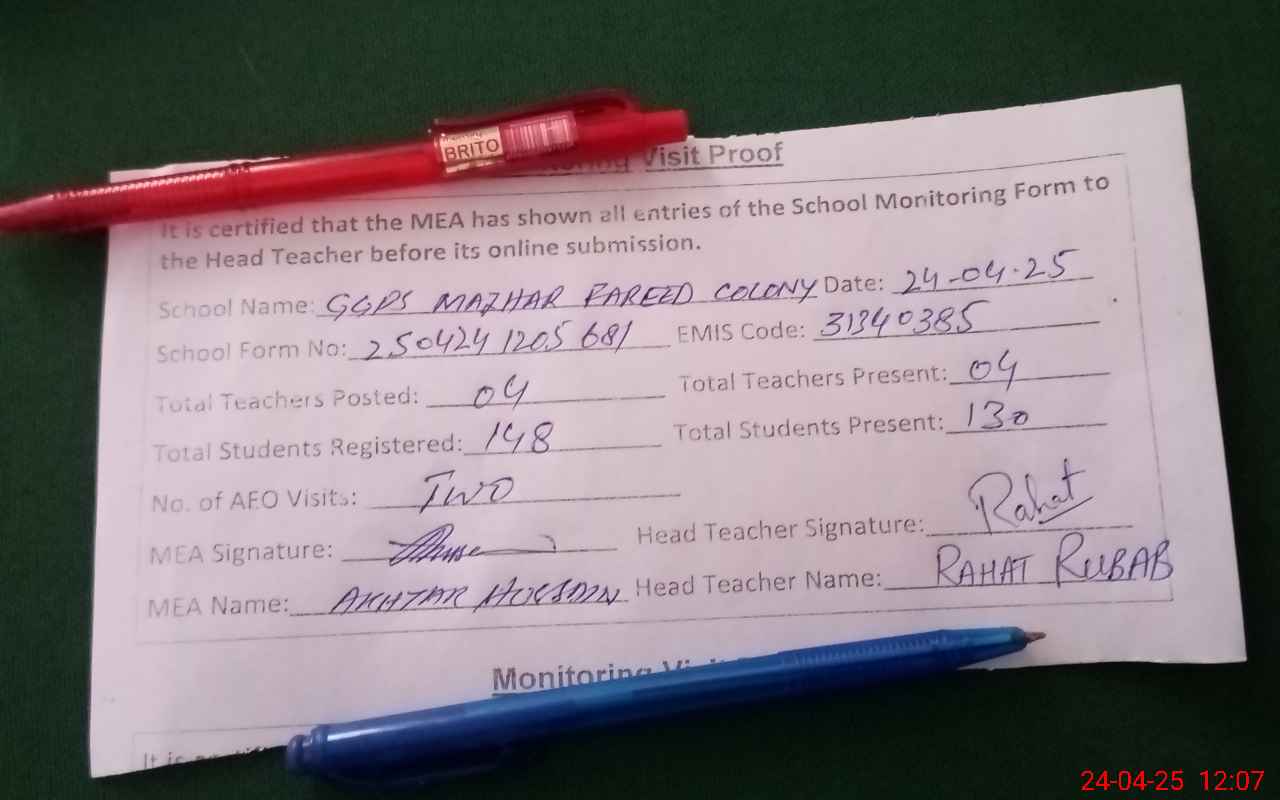 BRITO
itoring Visit Proof
It is certified that the MEA has shown all entries of the School Monitoring Form to
the Head Teacher before its online submission.
School Name: GGPS MAZHAR FAREED COLONY Date: 24-04-25
School Form No: 2504241205681 EMIS Code: 31340385
Total Teachers Posted: 04 Total Teachers Present: 04
Total Students Registered: 148 Total Students Present: 130
No. of AEO Visits: Two
MEA Signature: Head Teacher Signature: Rahat
MEA Name: AKHTAR HUSSAIN Head Teacher Name: RAHAT RUBAB
Monitoring Visit
It is certifi
24-04-25 12:07